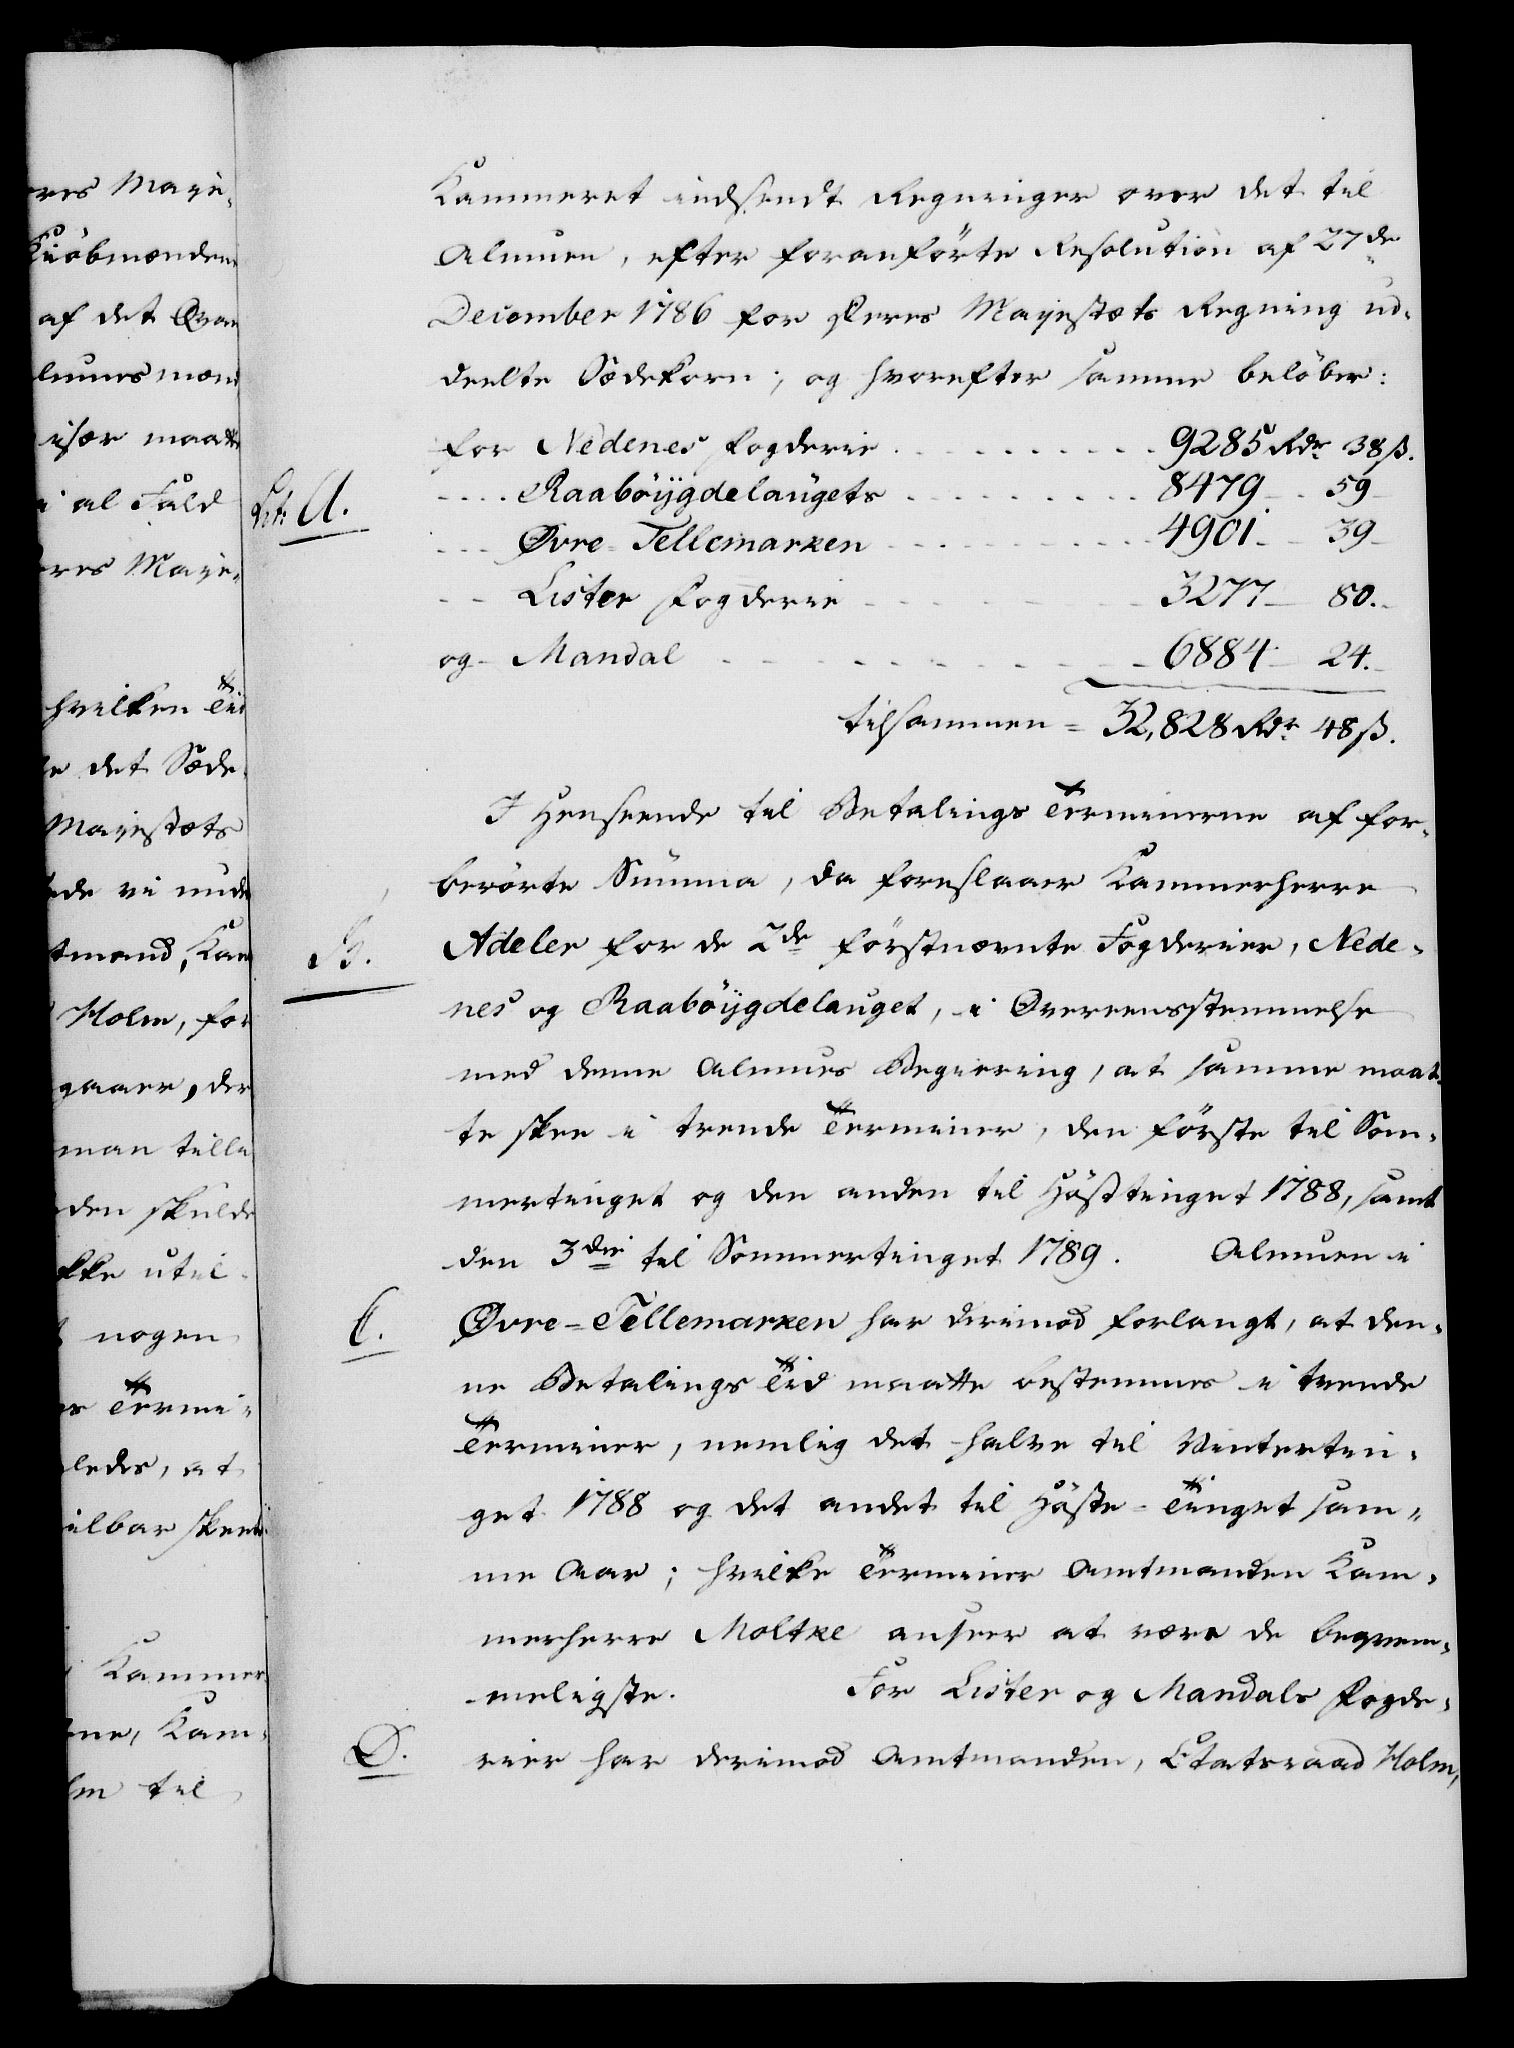 res Maje-
Kiöbmændene
af det Qvan
lmues mæn
især maatte
i al Fald
res Maje-
hvilken Tiid
e det Sæde-
Majestæts
de vi unde
tmand, Kam
Holm, for
gaaer, der
man tille
den skulde
kke util-
nogen
s Termi-
ledes, at
Kammer
ne, Kam-
lm til
Kammeret indsendt Regninger over det til
Almuen, efter foranförte Resolution af 27de
December 1786 for Deres Majestæts Regning ud-
deelte Sædekorn; og hvorefter samme belöber:
for Nedenes Fogderie . . . . . . . . . 9285 Rdr 38 ß.
Litr A. . . . . Raaböÿgdelaugets . . . . . . . . 8479 - 59 -
- - - Øvre-Tellemarken - - - - - - - - - 4901 - 39 -
- - Lister Fogderie - - - - - - 3277 - 80. -
og - Mandal - - - - - - - - - 6884 - 24. -
tilsammen = 32,828 Rdr 48 ß.
I Henseende til Betalings Terminerne af for-
berörte Summa, da foreslaaer Kammerherre
B. Adeler for de 2de förstnævnte Fogderier, Nede-
nes og Raaböÿgdelauget, i Overeensstemmelse
med denne Almues Begiering, at samme maat-
te skee i trende Terminer, den förste til Som-
mertinget og den anden til Hösttinget 1788, samt
den 3die til Sommertinget 1789. Almuen i
C. Øvre-Tellemarken har derimod forlangt, at den-
ne Betalings Tid maatte bestemmes i tvende
Terminer, nemlig det halve til Vinterтin-
get 1788 og det andet til Höste-Tinget sam-
me Aar; hvilke Terminer Amtmanden Kam-
merherre Moltke anseer at være de beqvem-
meligste. For Lister og Mandals Fogde-
D. rier har derimod Amtmanden, Etatsraad Holm,